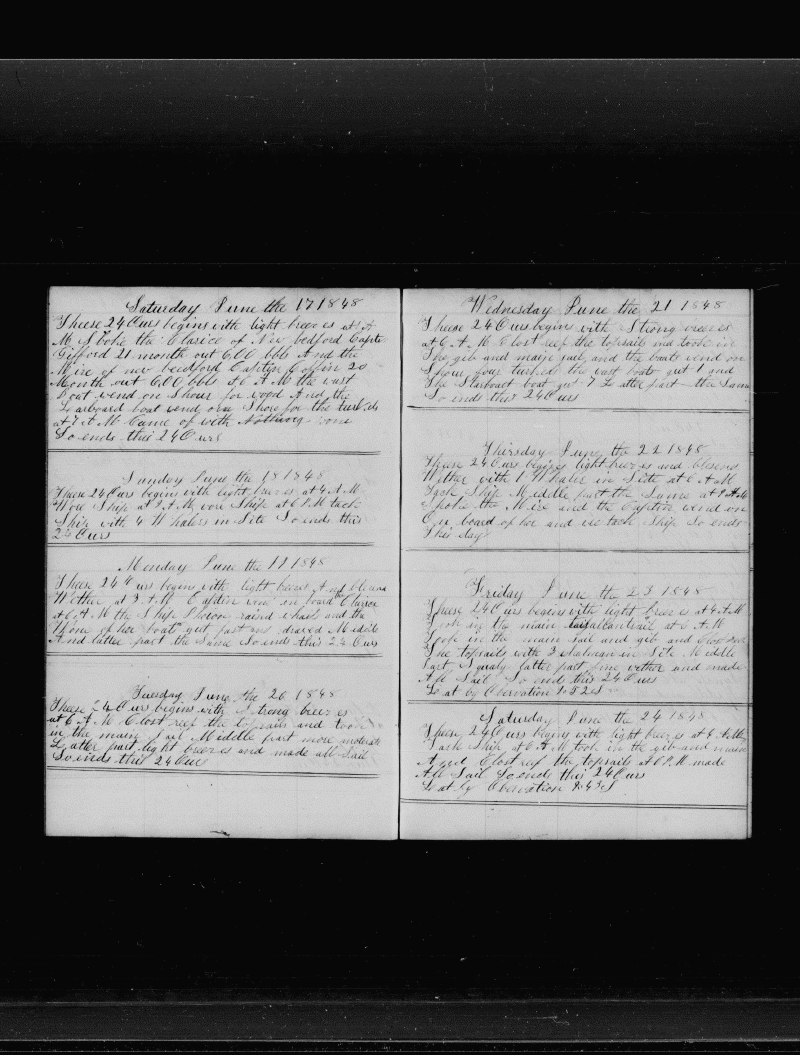 Saturday June the 17 1848
Theese 24 Ours begins vith light breezes at 1 A
M Spoke the Clarice of New bedford Captn
Gifford 21 month out 600 bbls And the
Mire of new beedford Captijn Coffin 20
Month out 600 bbls at 6 A M the vast
boat vend on Shour for vood And the
Larboard boat vend on a Shore for the turkels
at 7 A M Came of with Nothing
So ends this 24 Ours
Sunday June the 18 1848
Theese 24 Ours begins vith light breezes at 4 A M
Wore Ship at 9 A M vore Ship at 6 P M tack
Ship with 4 Whalers in Site So ends this
24 Ours
Monday June the 19 1848
Theese 24 Ours begins vith light breeses And
Wether at 3 A M Captin on board the Clarice
at 6 A M the Ship raised whails and the
of her boats got fast and draved Middle
And latter part the Same So ends this 24 Ours
Tuesday June the 20 1848
Theese 24 Ours begins vith Strong breezes
at 6 A M Clost reef the topsails and took
in the main Sail Middle part more moderate
Latter part light breezes and made all Sail
So ends this 24 Ours
Wednesday June the 21 1848
Theese 24 Ours begins with Strong breezes
at 6 A M Clost reef the topsails and took in
The gib and main sail and the boats vend on
Shour four turkels the vast boats got 1 and
the Starboart boat got 7 Latter part the Same
So ends this 24 Ours
Thursday June the 22 1848
Theese 24 Ours begins light breezes and
Wether with 1 Whaler in Site at 6 A M
Tack Ship Middle part the Same at 9 A M
Spoke the Mire and the Captin vend on
On board of her and we tack Ship So ends
This day
Friday June the 23 1848
Theese 24 Ours begins vith light breezes at 4 A M
Took in the main at 6 A M
Took in the main Sail and gib and Clost reef
The topsails with 3 in Site Middle
Part Squaly latter part fine wether and made
All Sail So ends this 24 Ours
Lat by Observation 9:52 S
Saturday June the 24 1848
Theese 24 Ours begins with light breezes at 4 A M
Tack Ship at 6 A M took in the gib and main
And Clost reef the topsails at 6 P M made
All Sail So ends this 24 Ours
Lat by Observation 9:43 S